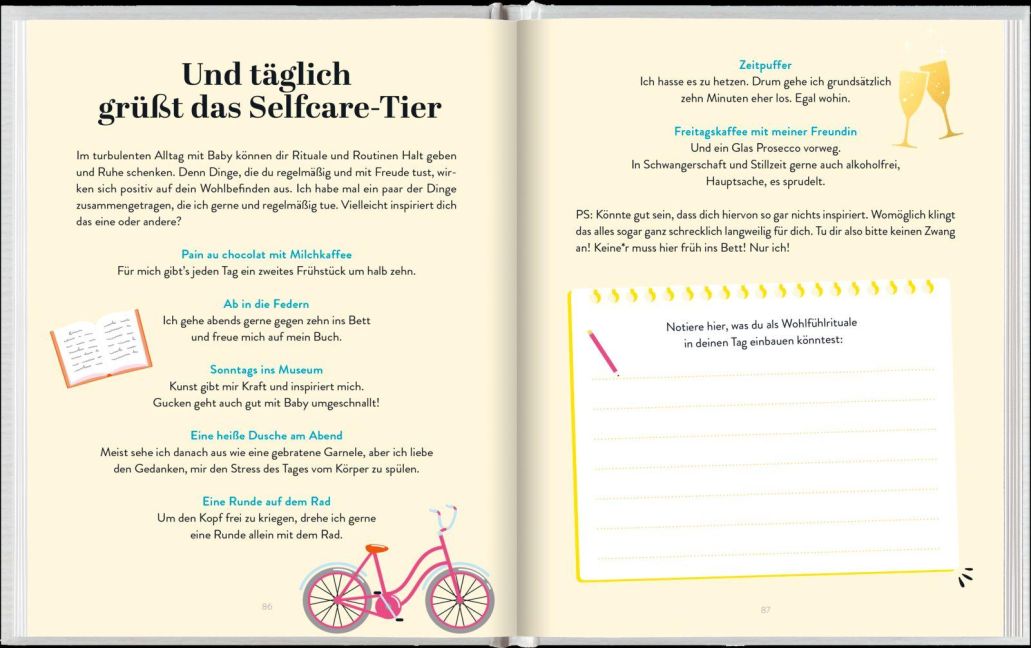 Und täglich
grüßt das Selfcare-Tier
Im turbulenten Alltag mit Baby können dir Rituale und Routinen Halt geben
und Ruhe schenken. Denn Dinge, die du regelmäßig und mit Freude tust, wir-
ken sich positiv auf dein Wohlbefinden aus. Ich habe mal ein paar der Dinge
zusammengetragen, die ich gerne und regelmäßig tue. Vielleicht inspiriert dich
das eine oder andere?
Pain au chocolat mit Milchkaffee
Für mich gibt's jeden Tag ein zweites Frühstück um halb zehn.
Ab in die Federn
Ich gehe abends gerne gegen zehn ins Bett
und freue mich auf mein Buch.
Sonntags ins Museum
Kunst gibt mir Kraft und inspiriert mich.
Gucken geht auch gut mit Baby umgeschnallt!
Eine heiße Dusche am Abend
Meist sehe ich danach aus wie eine gebratene Garnele, aber ich liebe
den Gedanken, mir den Stress des Tages vom Körper zu spülen.
Eine Runde auf dem Rad
Um den Kopf frei zu kriegen, drehe ich gerne
eine Runde allein mit dem Rad.
86
Zeitpuffer
Ich hasse es zu hetzen. Drum gehe ich grundsätzlich
zehn Minuten eher los. Egal wohin.
Freitagskaffee mit meiner Freundin
Und ein Glas Prosecco vorweg.
In Schwangerschaft und Stillzeit gerne auch alkoholfrei,
Hauptsache, es sprudelt.
PS: Könnte gut sein, dass dich hiervon so gar nichts inspiriert. Womöglich klingt
das alles sogar ganz schrecklich langweilig für dich. Tu dir also bitte keinen Zwang
an! Keine*r muss hier früh ins Bett! Nur ich!
Notiere hier, was du als Wohlfühlrituale
in deinen Tag einbauen könntest:
87